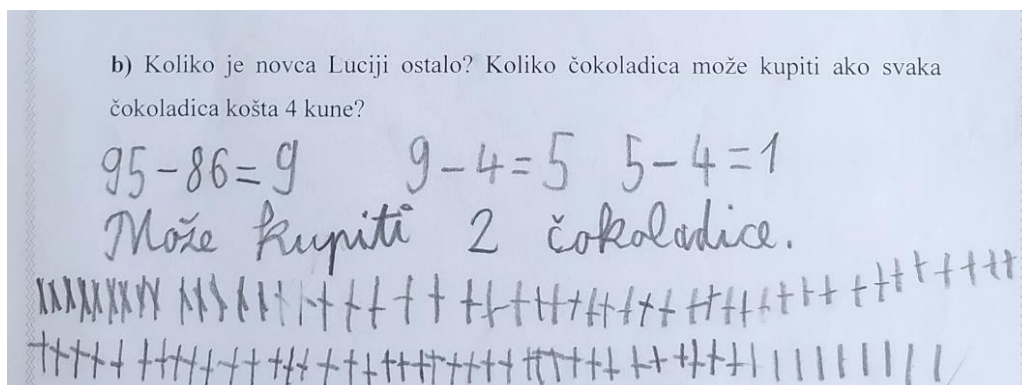 b) Koliko je novca Luciji ostalo? Koliko čokoladica može kupiti ako svaka
čokoladica košta 4 kune?
95-86=9 9-4=5 5-4=1
Može kupiti 2 čokoladice.